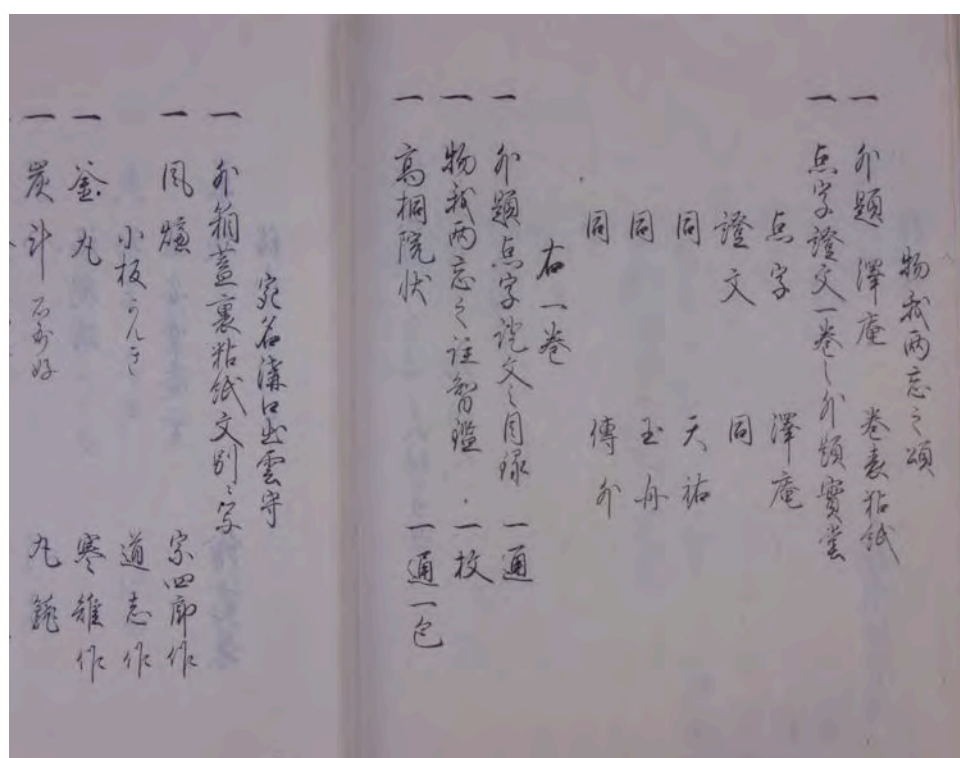 物我両忘之頌
一 外題 澤庵 巻表粘紙
一 点字證文一巻之外題實堂
点字 澤庵
證文 同
同 天祐
同 玉舟
同 傳外
右一巻
一 外題点字證文之目録 一通
一 物我両忘之註智鑑 一枚
一 高桐院状 一通一包
宛名溝口出雲守
一 外箱蓋裏粘紙文別ニ写
一 風爐 宗四郎作
小板 道志作
一 釜 丸 寒雉作
一 炭斗 丸